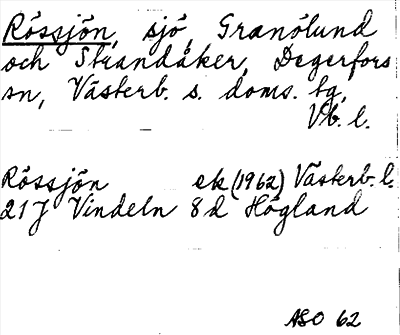 Rössjön, sjö, Granölund
och Strandåker, Degerfors
sn, Västerb. s. doms. tg,
Vb. l.
Rössjön ek (1962) Västerb. l.
21J Vindeln 8d Högland
ASO 62